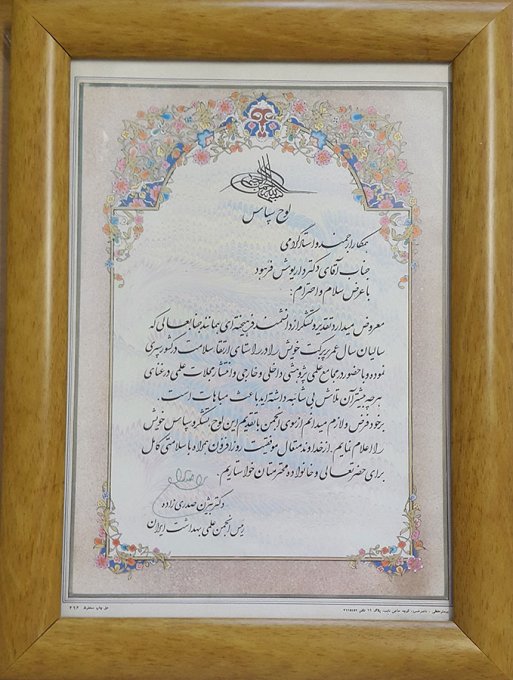 لوح سپاس
همکار ارجمند و استاد گرامی
جناب آقای دکتر داریوش فرهود
با عرض سلام و احترام:
معروض میدارد تقدیر و تشکر از دانشمند فرهیخته‌ای همانند جنابعالی که
سالیان سال عمر پربرکت خویش را در راستای ارتقا سلامت در کشور سپری
نموده و با حضور در مجامع علمی پژوهشی داخلی و خارجی و انتشار مجلات علمی در غنای
هر چه بیشتر آن تلاش بی شائبه داشته‌اید باعث مباهات است.
بر خود فرض و لازم میدانم از سوی انجمن با تقدیم این لوح تشکر و سپاس خویش
را اعلام نمایم. از خداوند متعال موفقیت روزافزون همراه با سلامتی کامل
برای حضرتعالی و خانواده محترمتان خواستاریم.
دکتر بیژن صدری زاده
رئیس انجمن علمی بهداشت ایران
حق چاپ محفوظ ۲۱۲